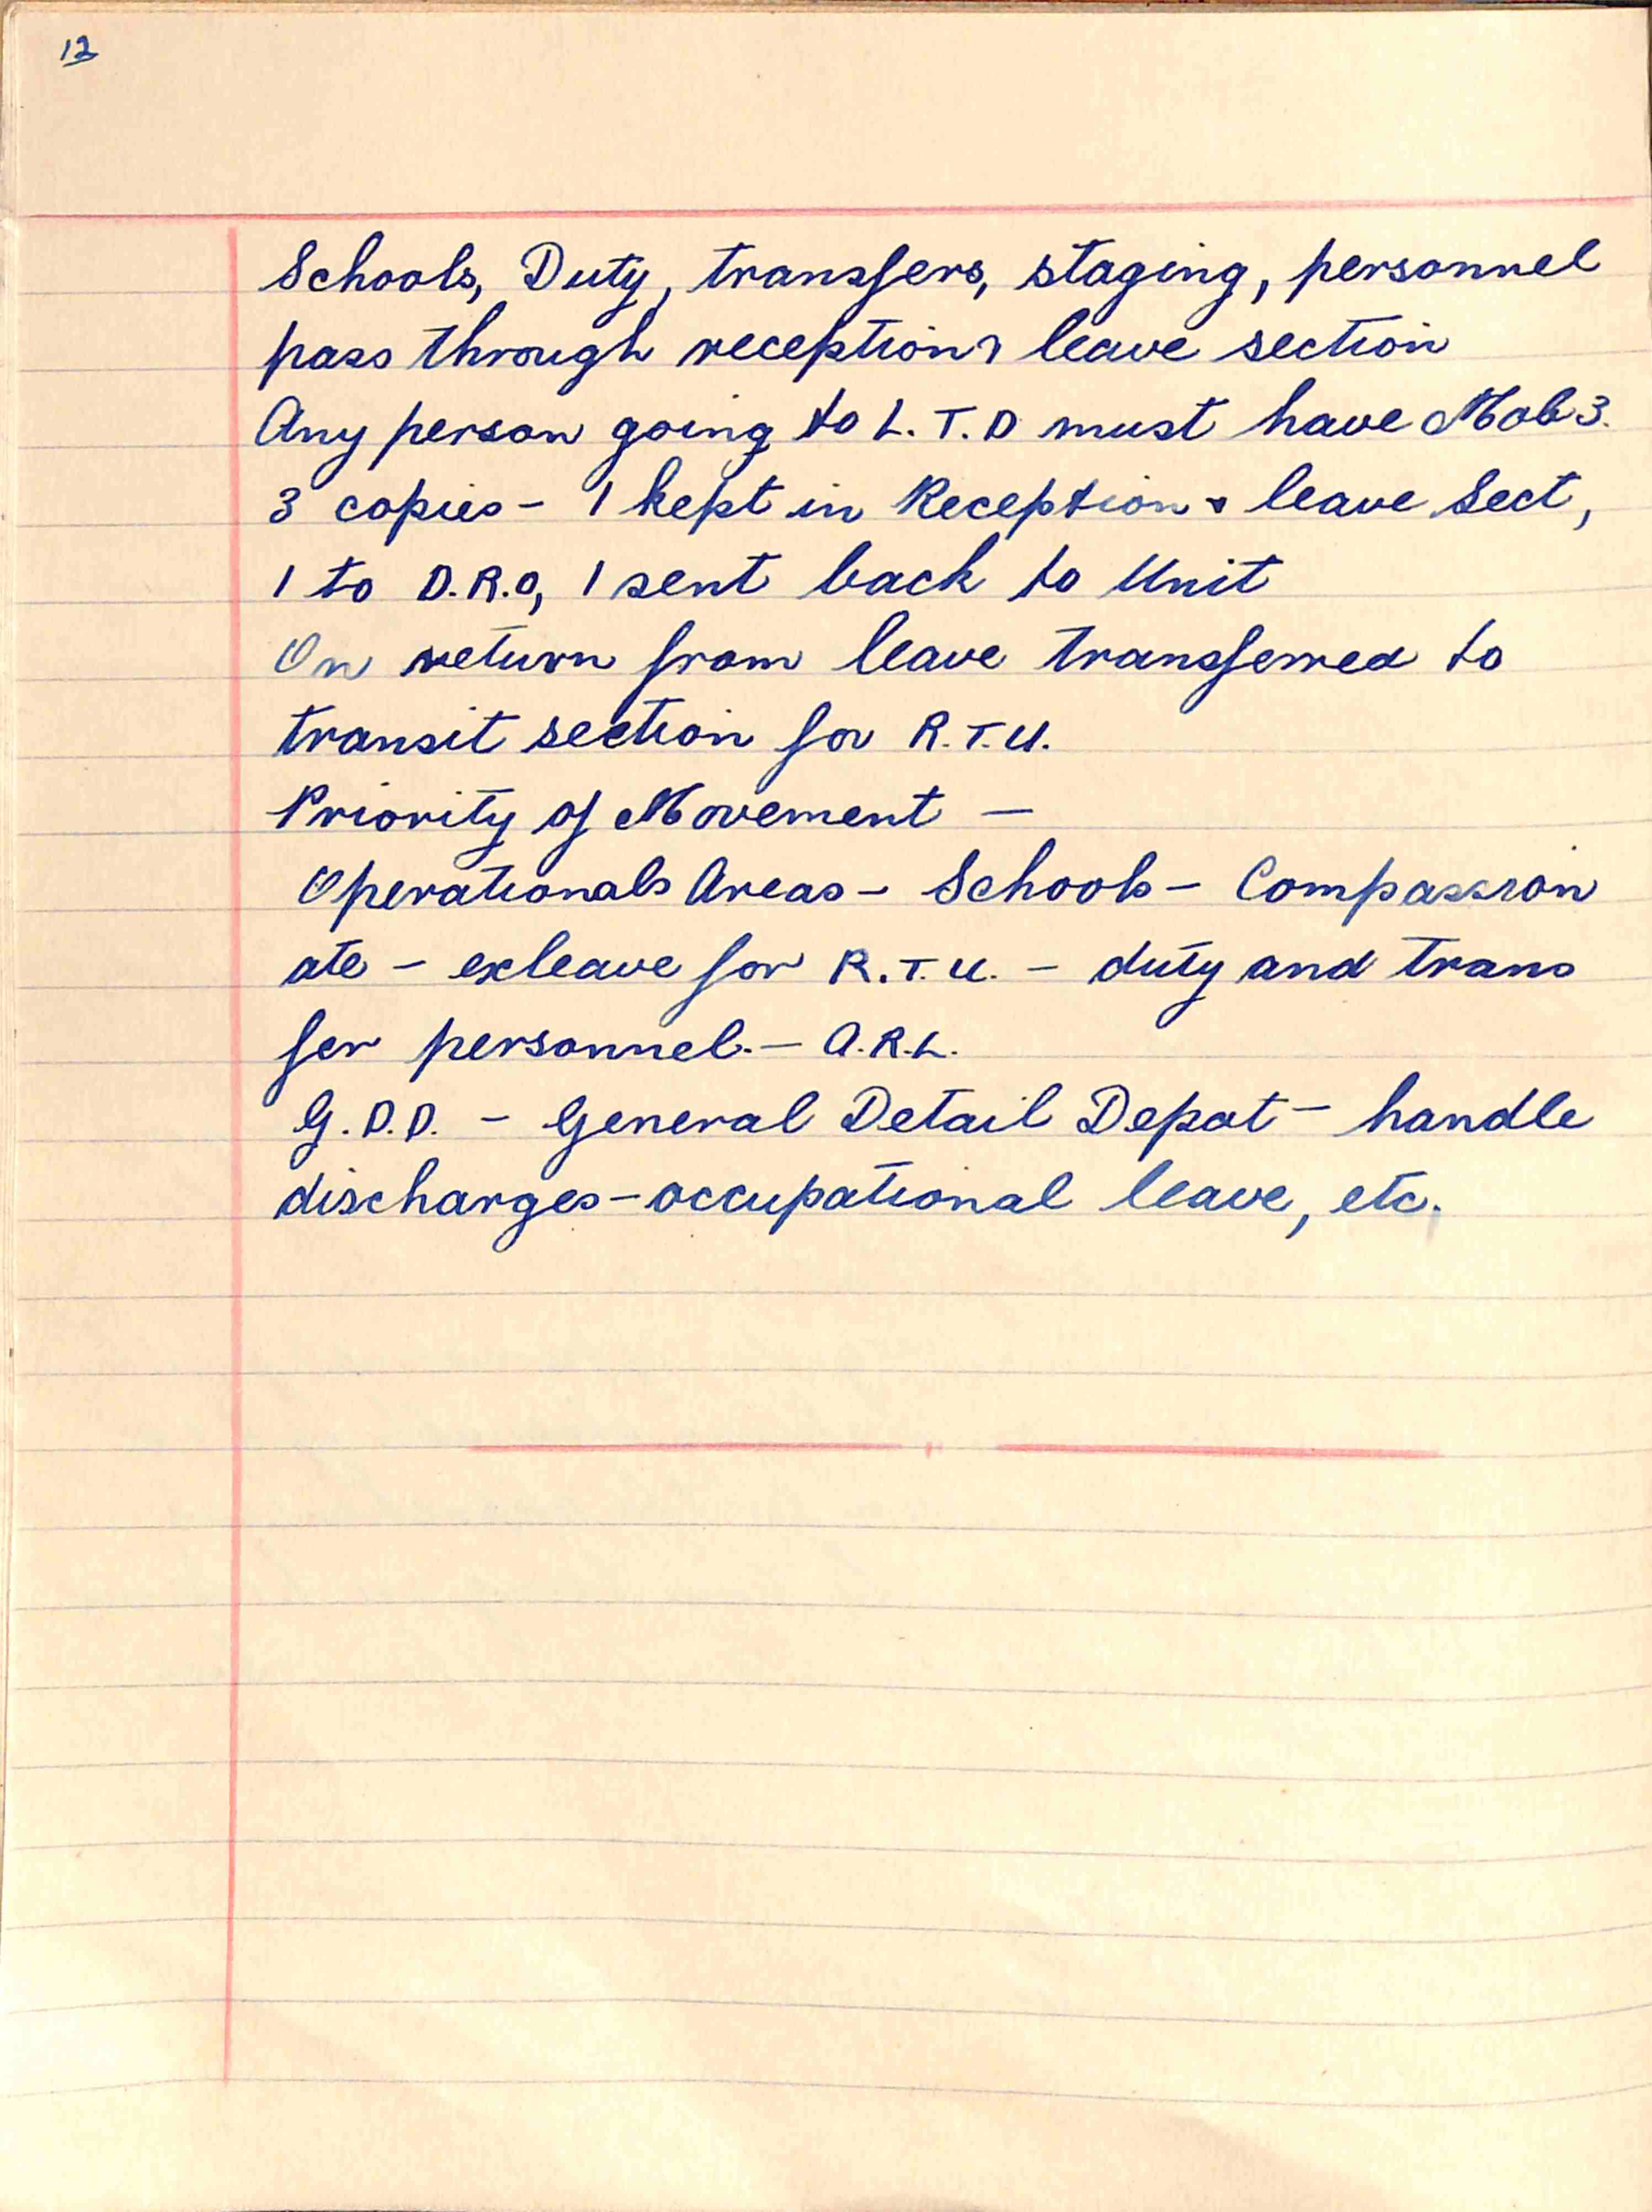 12
Schools, Duty, transfers, staging, personnel
pass through reception & leave section
Any person going to L.T.D must have Mob 3.
3 copies - 1 kept in Reception & leave Sect,
1 to D.R.O, 1 sent back to Unit
On return from leave transferred to
transit section for R.T.U.
Priority of Movement —
Operationals Areas - Schools - Compassion
ate - exleave for R.T.U. - duty and trans
fer personnel. - A.R.L.
G.D.D. - General Detail Depot - handle
discharges - occupational leave, etc.